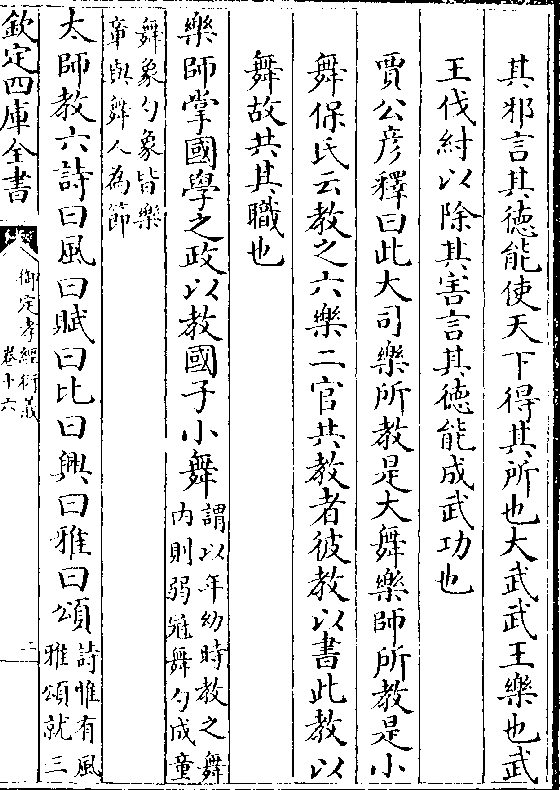 其邪言其徳能使天下得其所也大武武王樂也武
王伐紂以除其害言其徳能成武功也
賈公彦釋曰此大司樂所教是大舞樂師所教是小
舞保氏云教之六樂二官共教者彼教以書此教以
舞故共其職也
樂師掌國學之政以教國子小舞謂以年幼時教之舞
内則弱冠舞勺成童
舞象勺象皆樂
章與舞人為節
太師教六詩曰風曰賦曰比曰興曰雅曰頌詩惟有風
雅頌就三
欽定四庫全書
御定孝經衍義
卷十六
二